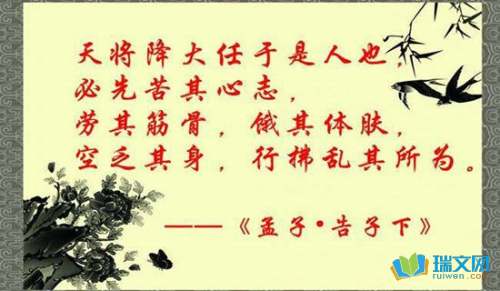 天将降大任于是人也，
必先苦其心志，
劳其筋骨，饿其体肤，
空乏其身，行拂乱其所为。
——《孟子•告子下》
瑞文网
ruiwen.com